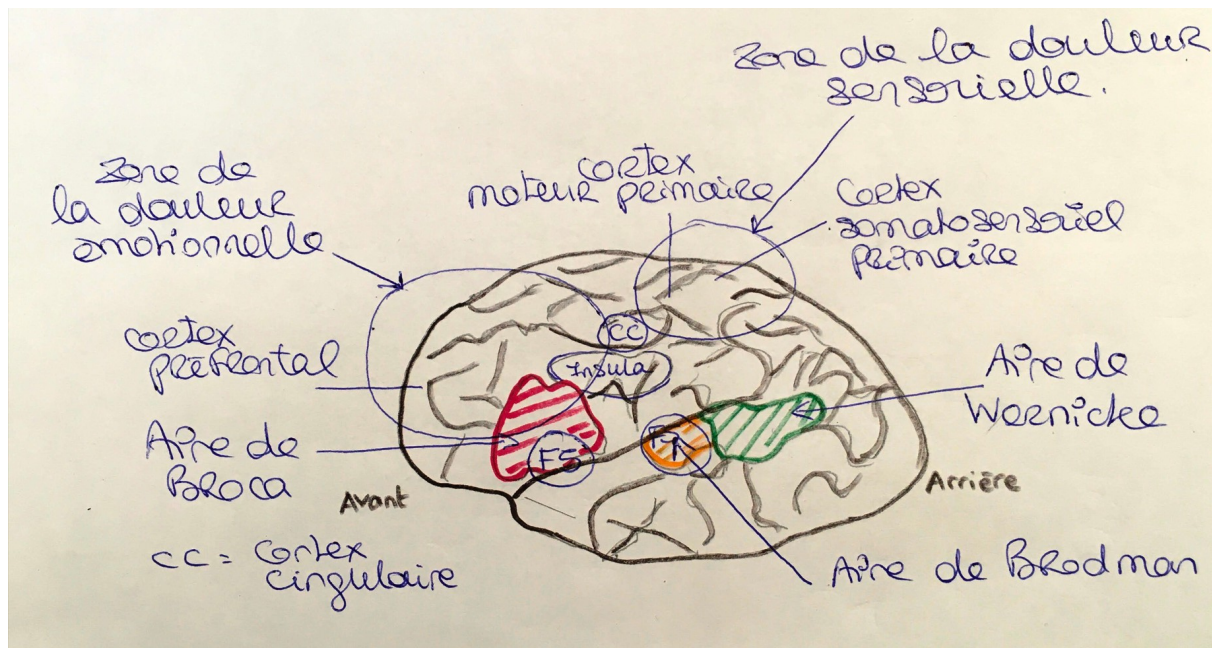 Zone de la douleur
sensorielle.
Zone de
la douleur
emotionnelle
cortex
moteur primaire
Cortex
somatosensoriel
primaire
cortex
préfrontal
CC
Insula
Aire de
Wernicke
Aire de
Broca
F5
Avant
Arrière
CC = Cortex
cingulaire
Aire de Brodman